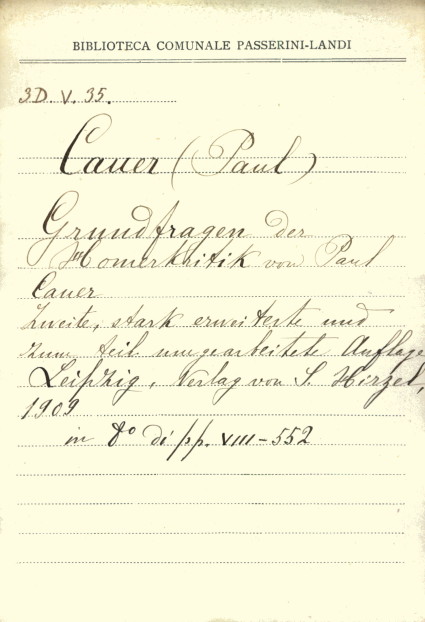 BIBLIOTECA COMUNALE PASSERINI-LANDI
3D. V. 35.
Cauer (Paul)
Grundfragen der
Homerkritik von Paul
Cauer
Zweite, stark erweiterte und
zum teil umgearbeitete Auflage
Leipzig, Verlag von S. Hirzel,
1909
in 8° di pp. VIII-552